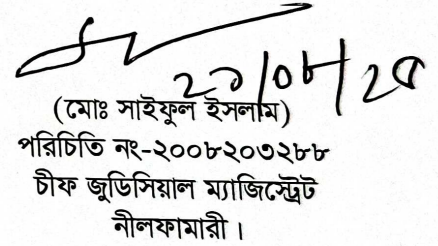 ২০/০৮/২৫
(মোঃ সাইফুল ইসলাম)
পরিচিতি নং-২০০৮২০৩২৮৮
চীফ জুডিসিয়াল ম্যাজিস্ট্রেট
নীলফামারী।